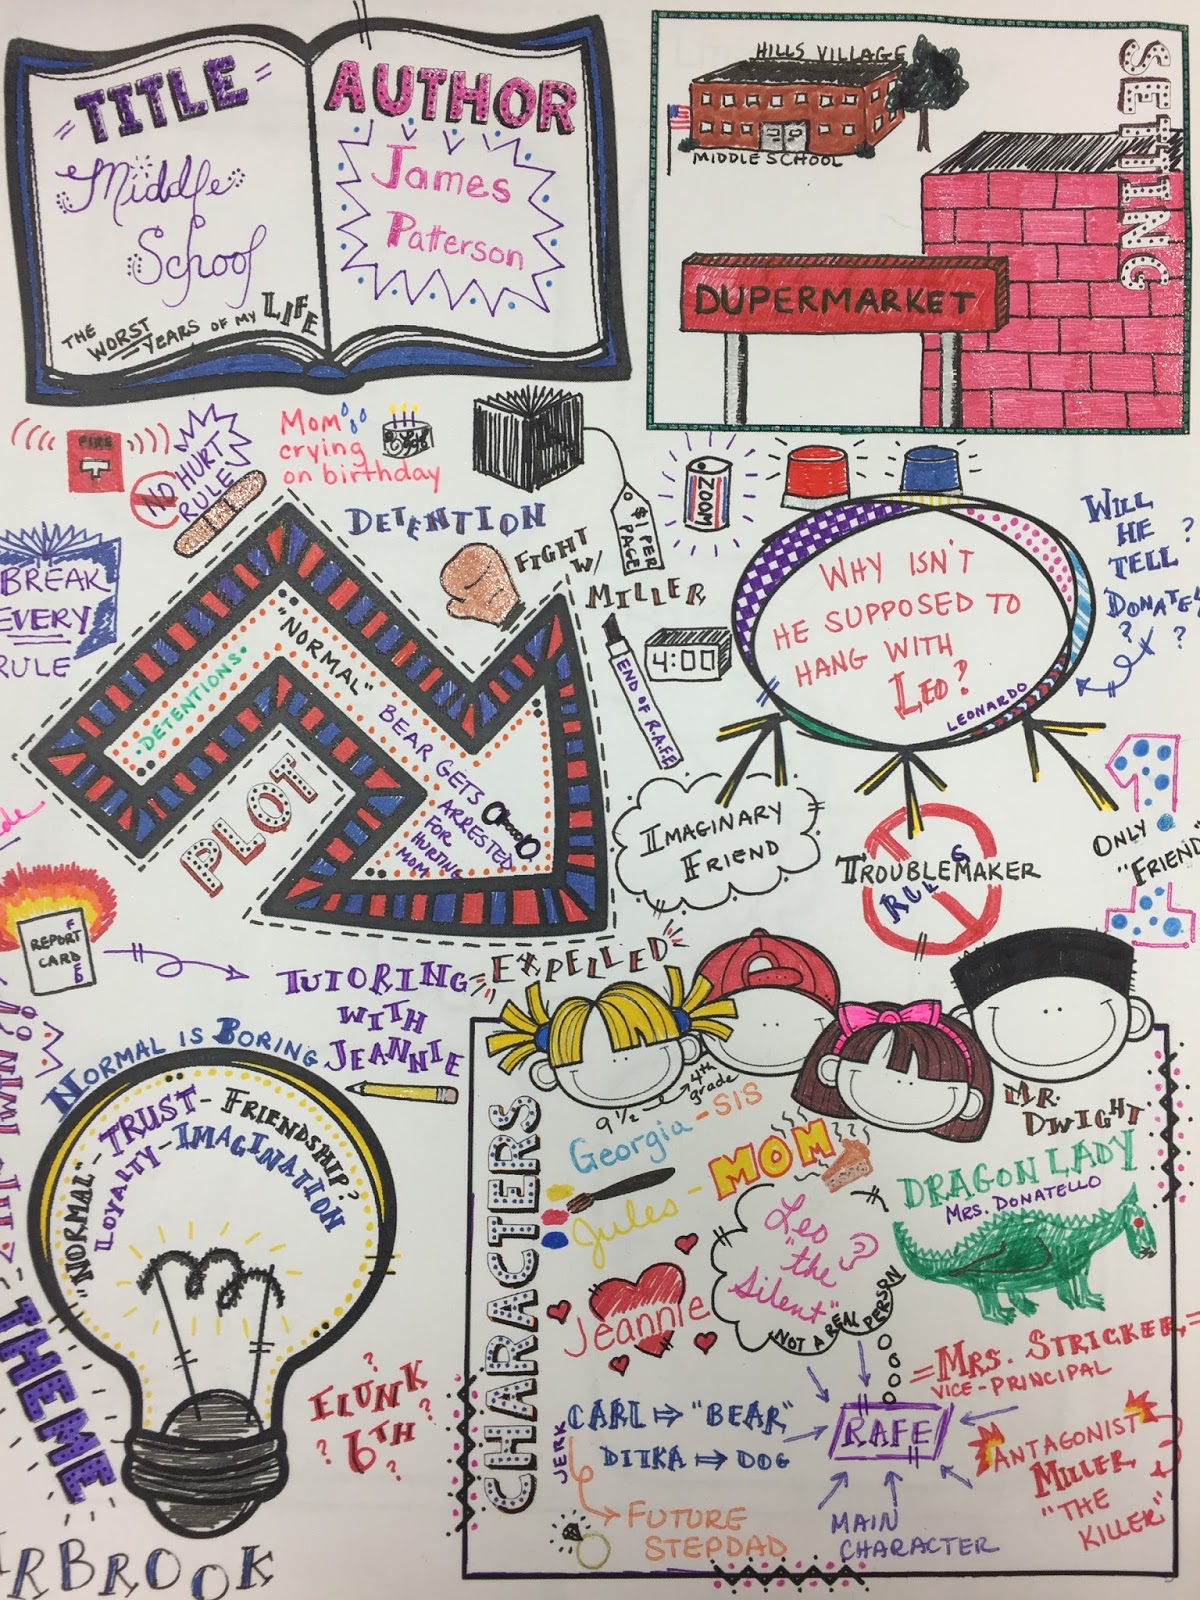 TITLE
Middle
School
THE WORST YEARS OF MY LIFE
AUTHOR
James
Patterson
SETTING
HILLS VILLAGE
MIDDLE SCHOOL
DUPERMARKET
FIRE
NO HURT
RULE
Mom
crying
on birthday
DETENTION
$1 PER
PAGE
ZOOM
FIGHT
W/
MILLER
BREAK
EVERY
RULE
"NORMAL"
DETENTIONS
BEAR GETS
ARRESTED
FOR
HURTING
MOM
PLOT
END OF R.A.F.E
4:00
WHY ISN'T
HE SUPPOSED TO
HANG WITH
LEO?
LEONARDO
WILL
HE
TELL ?
DONATE
? ?
IMAGINARY
FRIEND
TROUBLEMAKER
RULE
1
ONLY
"FRIEND
REPORT
CARD
F
TUTORING
WITH
JEANNIE
EXPELLED
NORMAL IS BORING
"NORMAL" - TRUST - FRIENDSHIP?
LOYALTY - IMAGINATION
THEME
FLUNK
? 6TH ?
RBROOK
CHARACTERS
9 1/2 → 4th
grade
Georgia - SIS
Jules - MOM
Jeannie
Leo
"the
Silent"
NOT A REAL PERSON
MR.
DWIGHT
DRAGON LADY
MRS. DONATELLO
= MRS. STRICKER =
VICE-PRINCIPAL
RAFE
MAIN
CHARACTER
ANTAGONIST
MILLER
"THE
KILLER"
CARL ⇒ "BEAR"
JERK
DITKA ⇒ DOG
FUTURE
STEPDAD